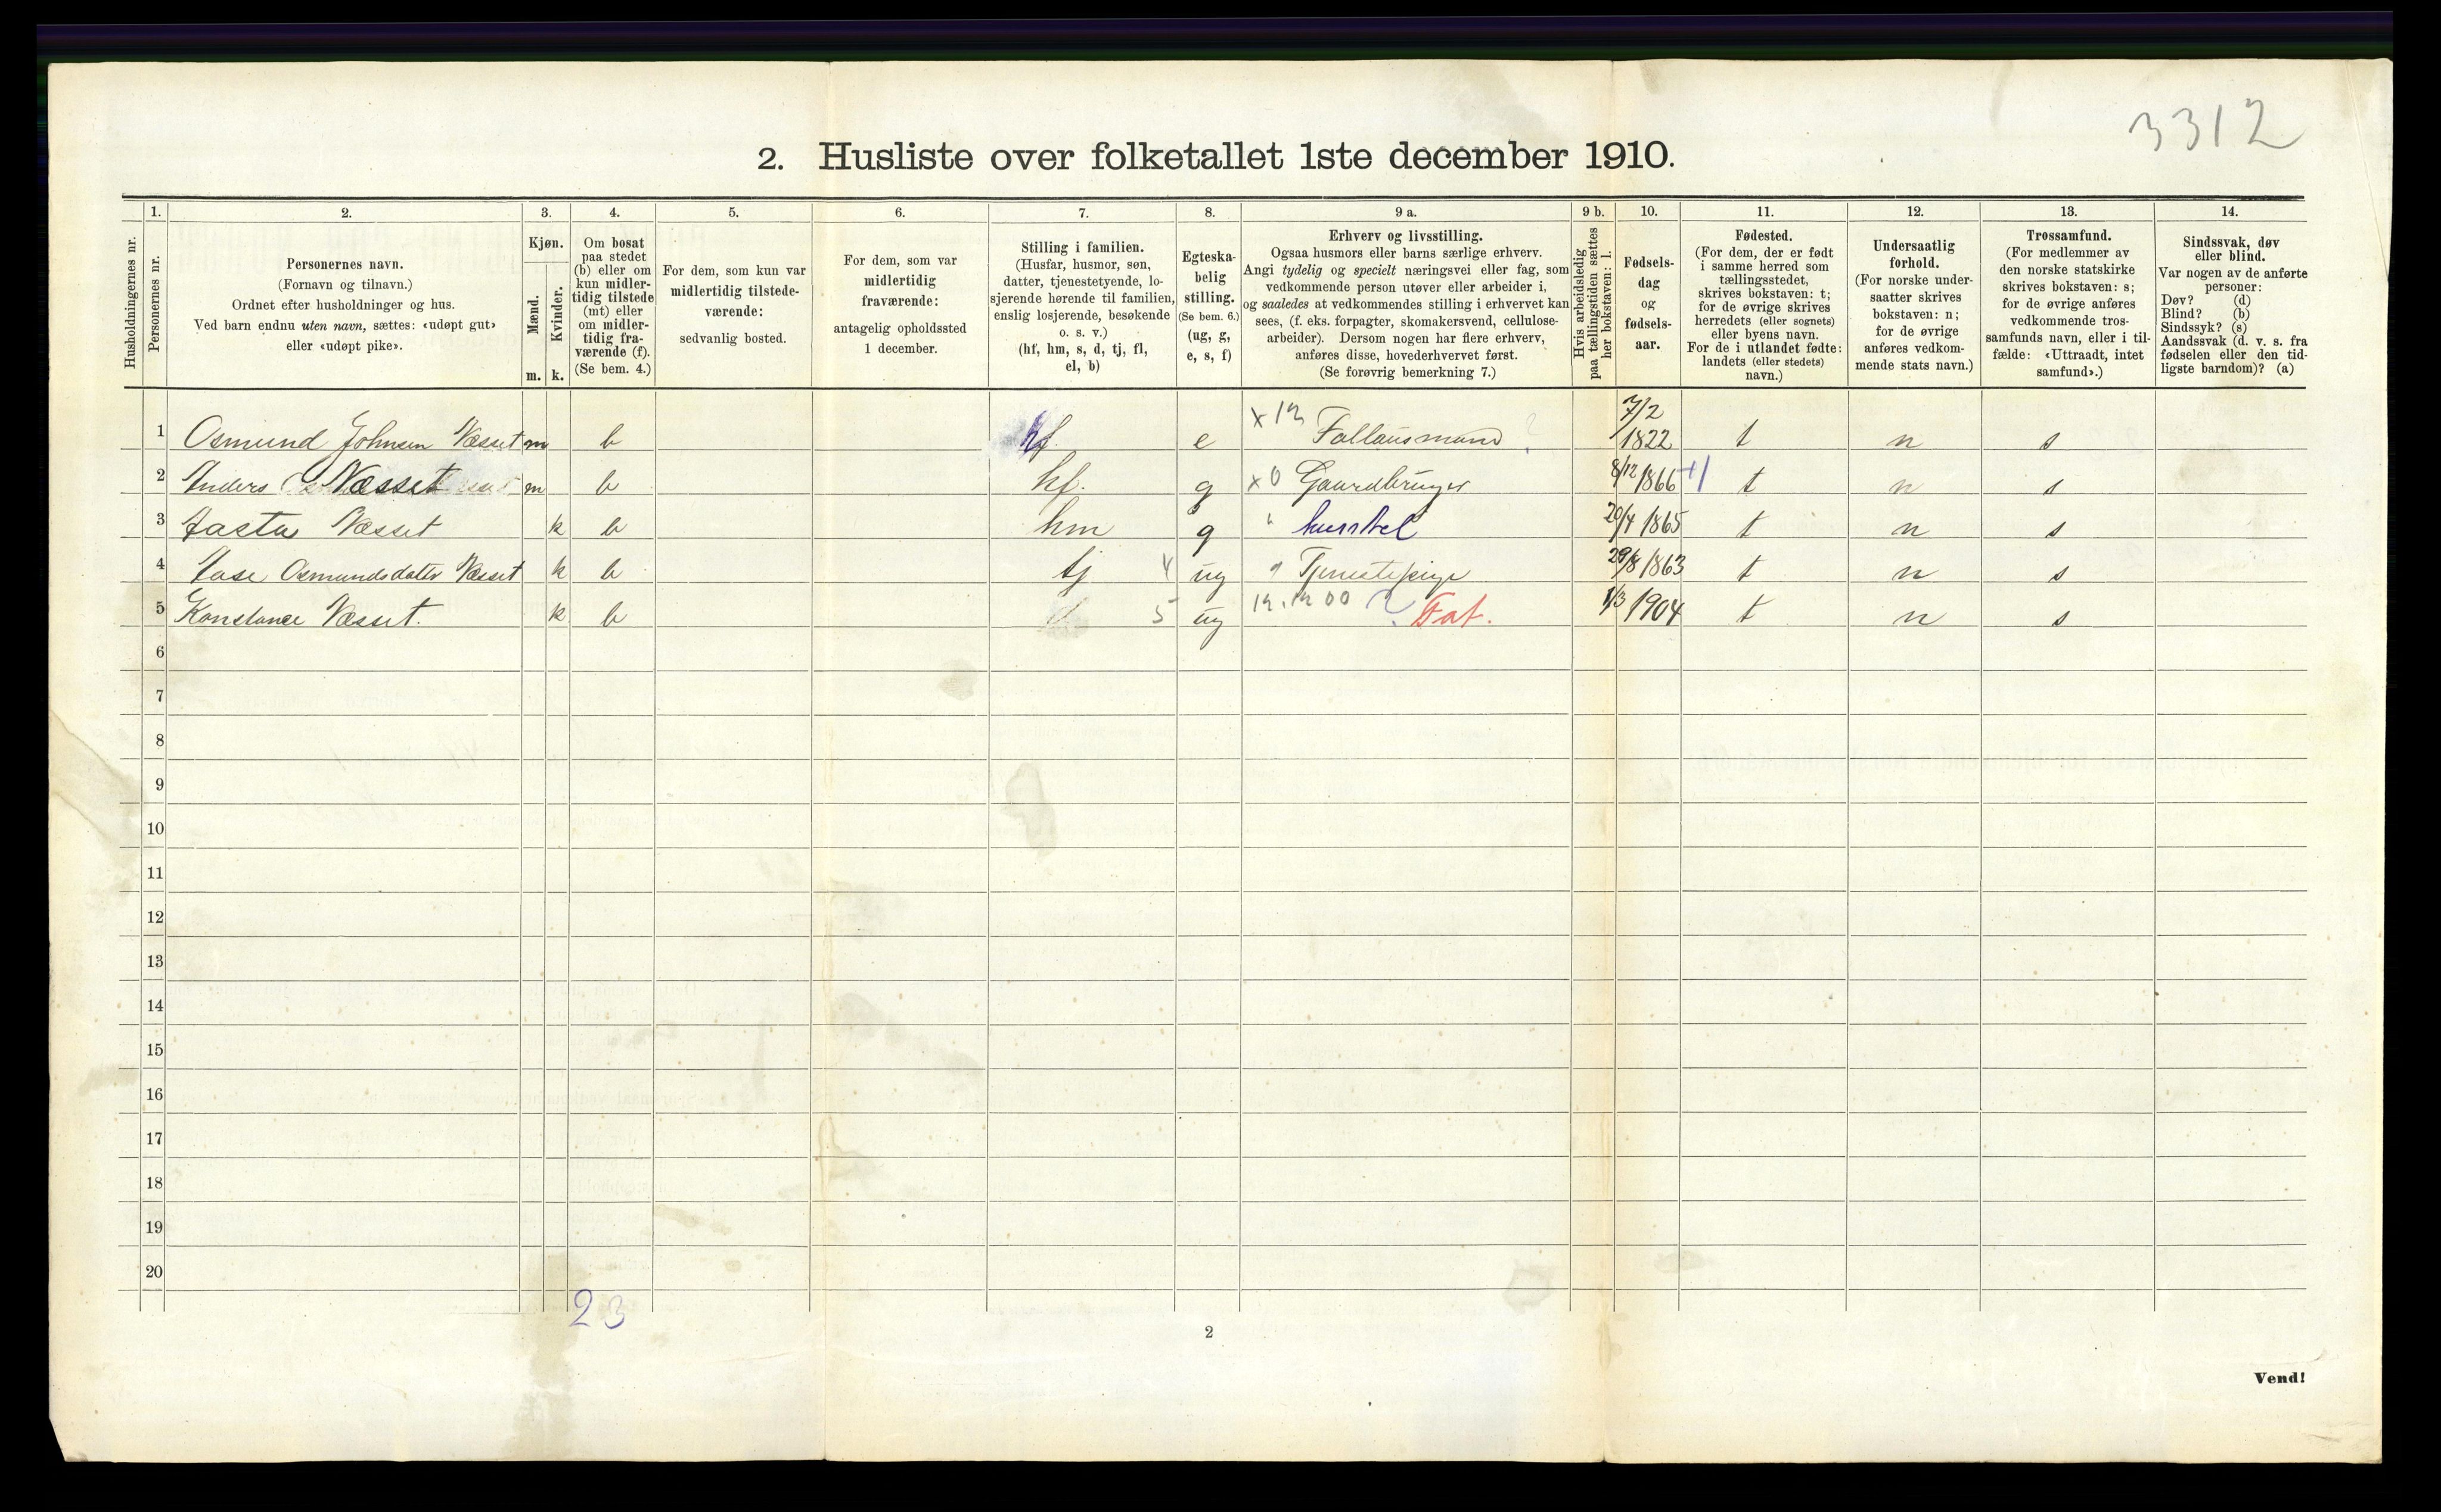 3312
2. Husliste over folketallet 1ste december 1910.
Husholdningernes nr.
1. Personernes nr.
2. Personernes navn.
(Fornavn og tilnavn.)
Ordnet efter husholdninger og hus.
Ved barn endnu uten navn, sættes: «udøpt gut»
eller «udøpt pike».
3. Kjøn.
Mænd. m.
Kvinder. k.
4. Om bosat
paa stedet
(b) eller om
kun midler-
tidig tilstede
(mt) eller
om midler-
tidig fra-
værende (f).
(Se bem. 4.)
5. For dem, som kun var
midlertidig tilstede-
værende:
sedvanlig bosted.
6. For dem, som var
midlertidig
fraværende:
antagelig opholdssted
1 december.
7. Stilling i familien.
(Husfar, husmor, søn,
datter, tjenestetyende, lo-
sjerende hørende til familien,
enslig losjerende, besøkende
o. s. v.)
(hf, hm, s, d, tj, fl,
el, b)
8. Egteska-
belig
stilling.
(Se bem. 6.)
(ug, g,
e, s, f)
9 a. Erhverv og livsstilling.
Ogsaa husmors eller barns særlige erhverv.
Angi tydelig og specielt næringsvei eller fag, som
vedkommende person utøver eller arbeider i,
og saaledes at vedkommendes stilling i erhvervet kan
sees, (f. eks. forpagter, skomakersvend, cellulose-
arbeider). Dersom nogen har flere erhverv,
anføres disse, hovederhvervet først.
(Se forøvrig bemerkning 7.)
9 b. Hvis arbeidsledig
paa tællingstiden sættes
her bokstaven: l.
10. Fødsels-
dag
og
fødsels-
aar.
11. Fødested.
(For dem, der er født
i samme herred som
tællingsstedet,
skrives bokstaven: t;
for de øvrige skrives
herredets (eller sognets)
eller byens navn.
For de i utlandet fødte:
landets (eller stedets)
navn.)
12. Undersaatlig
forhold.
(For norske under-
saatter skrives
bokstaven: n;
for de øvrige
anføres vedkom-
mende stats navn.)
13. Trossamfund.
(For medlemmer av
den norske statskirke
skrives bokstaven: s;
for de øvrige anføres
vedkommende tros-
samfunds navn, eller i til-
fælde: «Uttraadt, intet
samfund».)
14. Sindssvak, døv
eller blind.
Var nogen av de anførte
personer:
Døv? (d)
Blind? (b)
Sindssyk? (s)
Aandssvak (d. v. s. fra
fødselen eller den tid-
ligste barndom)? (a)
1 Osmund Johnsen Næsset m b hf. e x 12 Follausmand ? 7/2 1822 t n s
2 Anders Næsset m b hf. g x 0 Gaardbruger 8/12 1866 +1 t n s
3 Næsset k b hm g " husstel 20/4 1865 t n s
4 Aase Osmundsdatter Næsset k b tj 4 ug Tjenestepige 29/8 1863 t n s
5 Konstanse Næsset. k b d 5 ug 12.12 00 ? Fat. 1/3 1904 t n s
6
7
8
9
10
11
12
13
14
15
16
17
18
19
20
23
2
Vend!